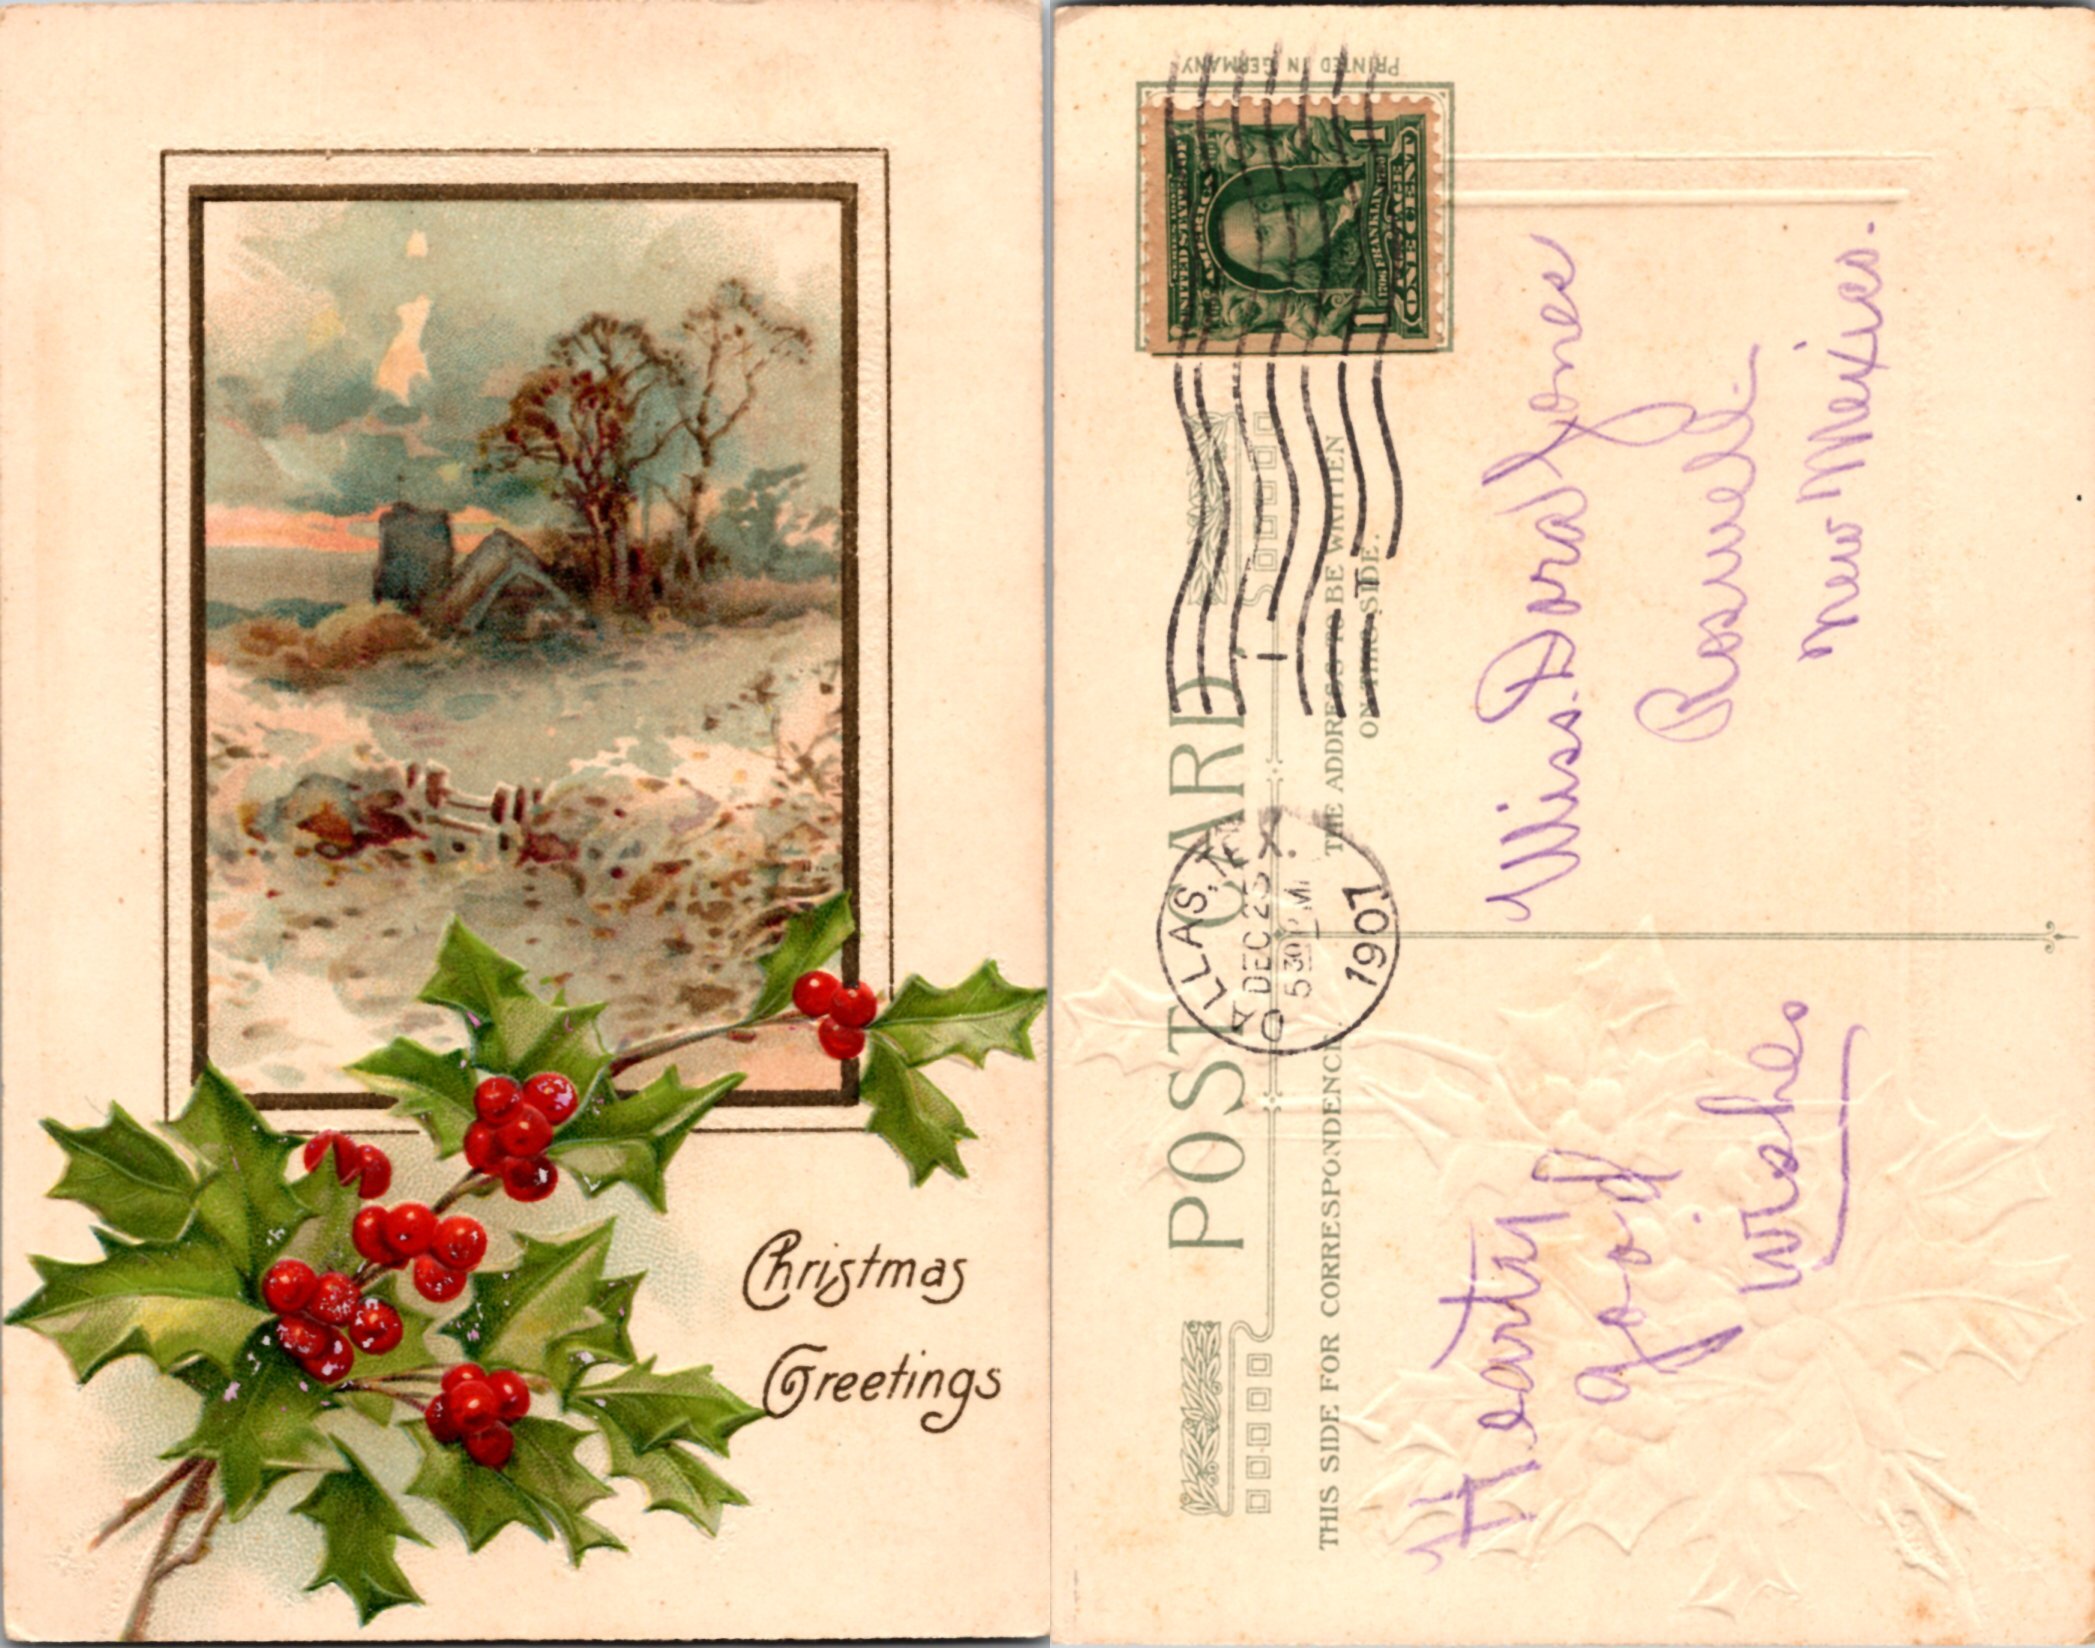 Christmas
Greetings
PRINTED IN GERMANY
SERIES 1902
UNITED STATES OF
AMERICA
1706 FRANKLIN 1790
POSTAGE
1 ONE CENT 1
POST CARD
DALLAS, TEX.
DEC 23
5 30 PM
1907
1
THIS SIDE FOR CORRESPONDENCE
THE ADDRESS TO BE WRITTEN
ON THIS SIDE.
Miss. Dora Jones
Roswell.
New Mexico.
Hearty
good
wishes